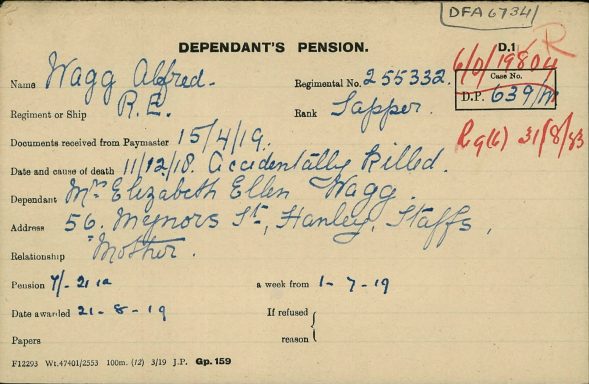 DFA 6734/
DEPENDANT'S PENSION.
D.1
R
6/0/19804
Name Wagg Alfred.
Regimental No. 255332.
Case No.
D.P. 639/M
Regiment or Ship R.E.
Rank Sapper.
Documents received from Paymaster 15/4/19.
R9(6) 31/8/83
Date and cause of death 11/12/18. Accidentally killed.
Dependant Mrs Elizabeth Ellen Wagg.
Address 56, Meynors St, Hanley, Staffs,
Relationship Mother.
Pension 7/- 21 a
a week from 1-7-19
Date awarded 21-8-19
If refused
reason
Papers
F12293 Wt.47401/2553 100m. (12) 3/19 J.P. Gp. 159